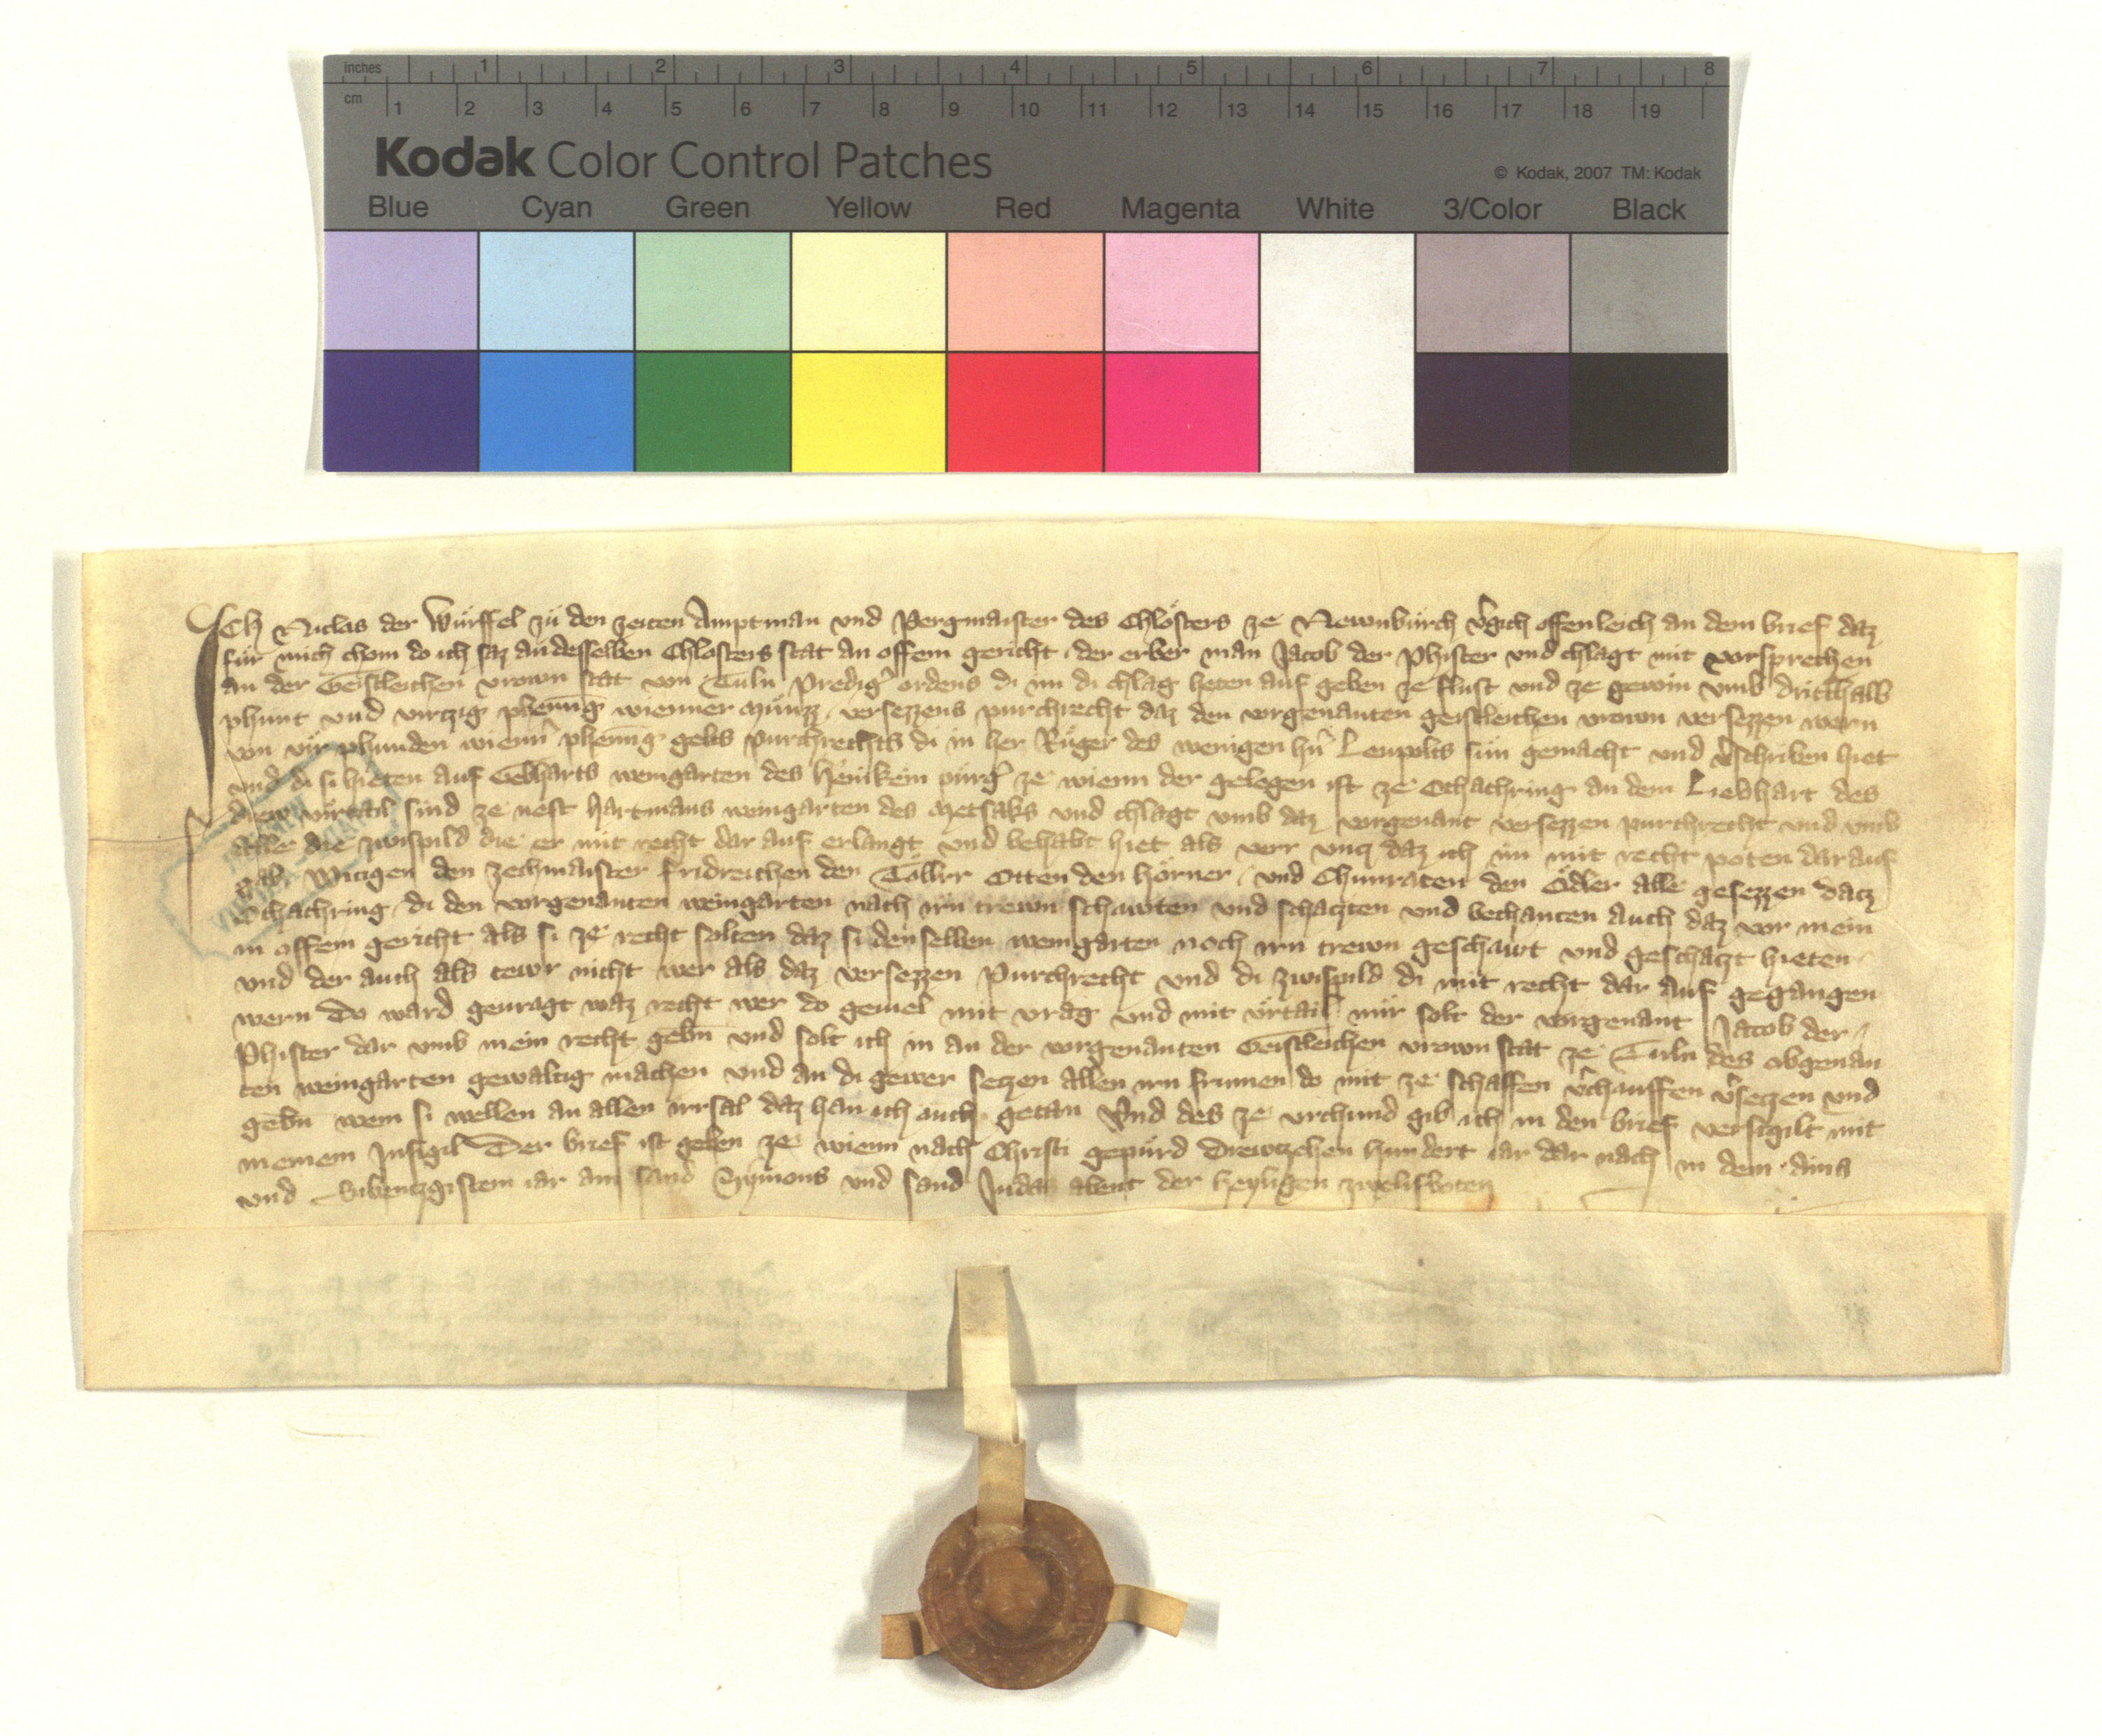 inches 1 2 3 4 5 6 7 8
cm 1 2 3 4 5 6 7 8 9 10 11 12 13 14 15 16 17 18 19
Kodak Color Control Patches
© Kodak, 2007 TM: Kodak
Blue Cyan Green Yellow Red Magenta White 3/Color Black
Ich Niclas der Würffel zü den zeiten Amptman und Pergmaister des Chlösters ze Newnbürch v̂gich offenleich an dem brief daz
für mich chom do ich saz an desselben Chlosters stat an offem gericht der erber man Jacob der Phister und chlagt mit vorsprechen
an der Geistleichen vrown stat von Tuln prediĝ ordens di im di chlag heten auf geben ze flust und ze gewin umb dritthalb
phunt und virczig phennig wienner münzz versezzens purchrecht daz den vorgenanten geistleichen vrown versezzen wern
von vir phunden wienn̂ phennig gelts purchrechts di in her Rüger des wenigen hn̂ Leupolts sün gemacht und v̂schriben hiet
und di si hieten auf Gebharts weingarten des pürĝ ze wienn der gelegen ist ze Othachring an dem Liebhart des
drew virtail sind ze nest hartmans weingarten des Metsaks und chlagt umb daz vorgenant versezzen purchrecht und umb
alle die zwispild die er mit recht dar auf erlangt und behabt hiet als verr uncz daz ich im mit recht poten dar auf
gab den zechmaister fridreichen den Otten den hörner und Chunraten den Ödler alle gesezzen dacz
Othachring di den vorgenanten weingarten nach irn trewn schawten und schaczten und bechanten auch daz vor mein
in offem gericht als si ze recht solten daz si denselben weingarten noch irn trewn geschawt und geschaczt hieten
und der auch als tewr nicht wer als daz versezzen Purchrecht und di zwispild di mit recht dar auf gegangen
wern Do ward gevragt waz recht wer do geviel mit vrag und mit ürtail mir solt der vorgenant Jacob der
Phister dar umb mein recht gebn und solt ich in an der vorgenanten Geistleichen vrown stat ze Tuln des obgenan
ten weingarten gewaltig machen und an di gewer seczen allen irn frumen do mit ze schaffen v̂chauffen v̂seczen und
gebn wem si wellen an allen irrsal daz han ich auch getan Und des ze urchund gib ich in den brief versigilt mit
meinem Insigil Der brief ist geben ze wienn nach Christi gepürd Drewczehen hundert iar dar nach in dem
und Sibenczgistem iar am sand Symons und sand Judas abent der heyligen zwelifboten